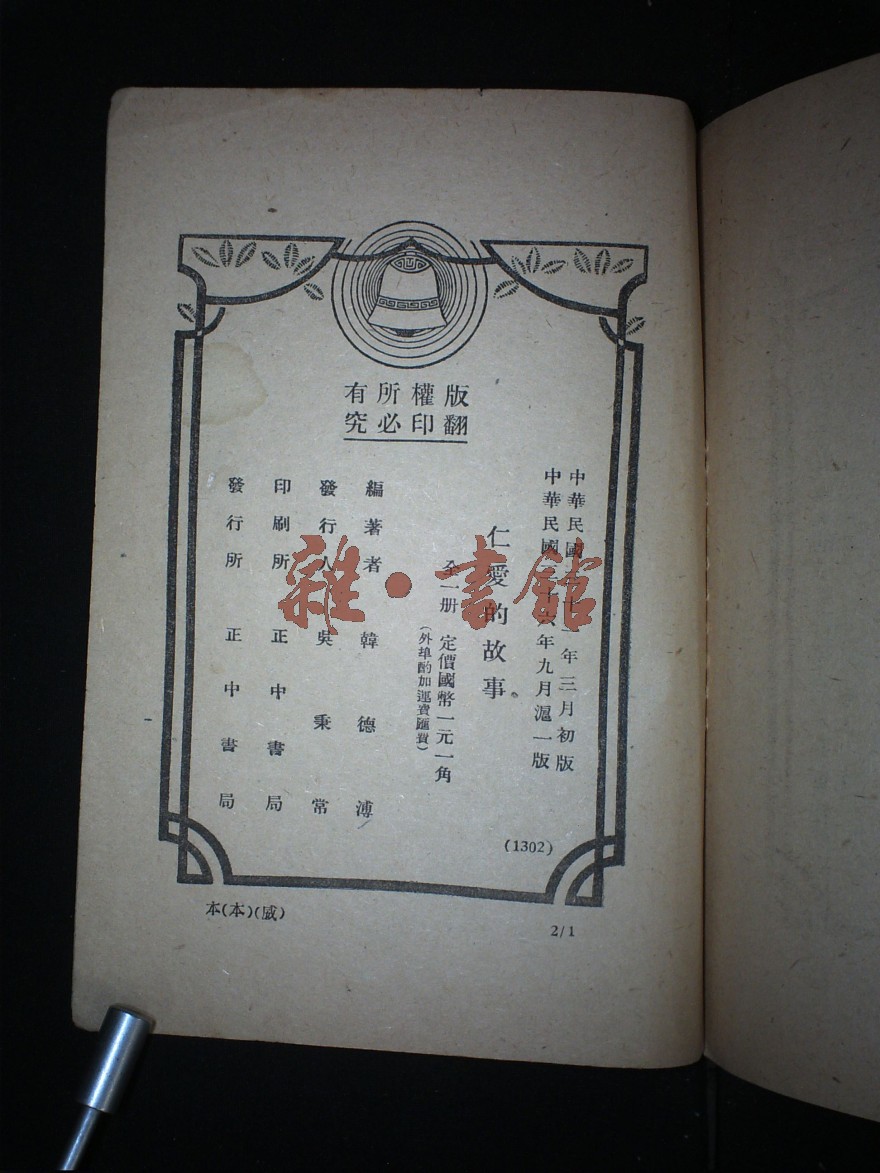 版權所有
翻印必究
中華民國三十年三月初版
中華民國三十六年九月滬一版
仁愛的故事
全一册 定價國幣一元一角
(外埠酌加運費匯費)
編著者 韓德溥
發行人 吳秉常
印刷所 正中書局
發行所 正中書局
(1302)
本(本)(威)
2/1
雜·書館